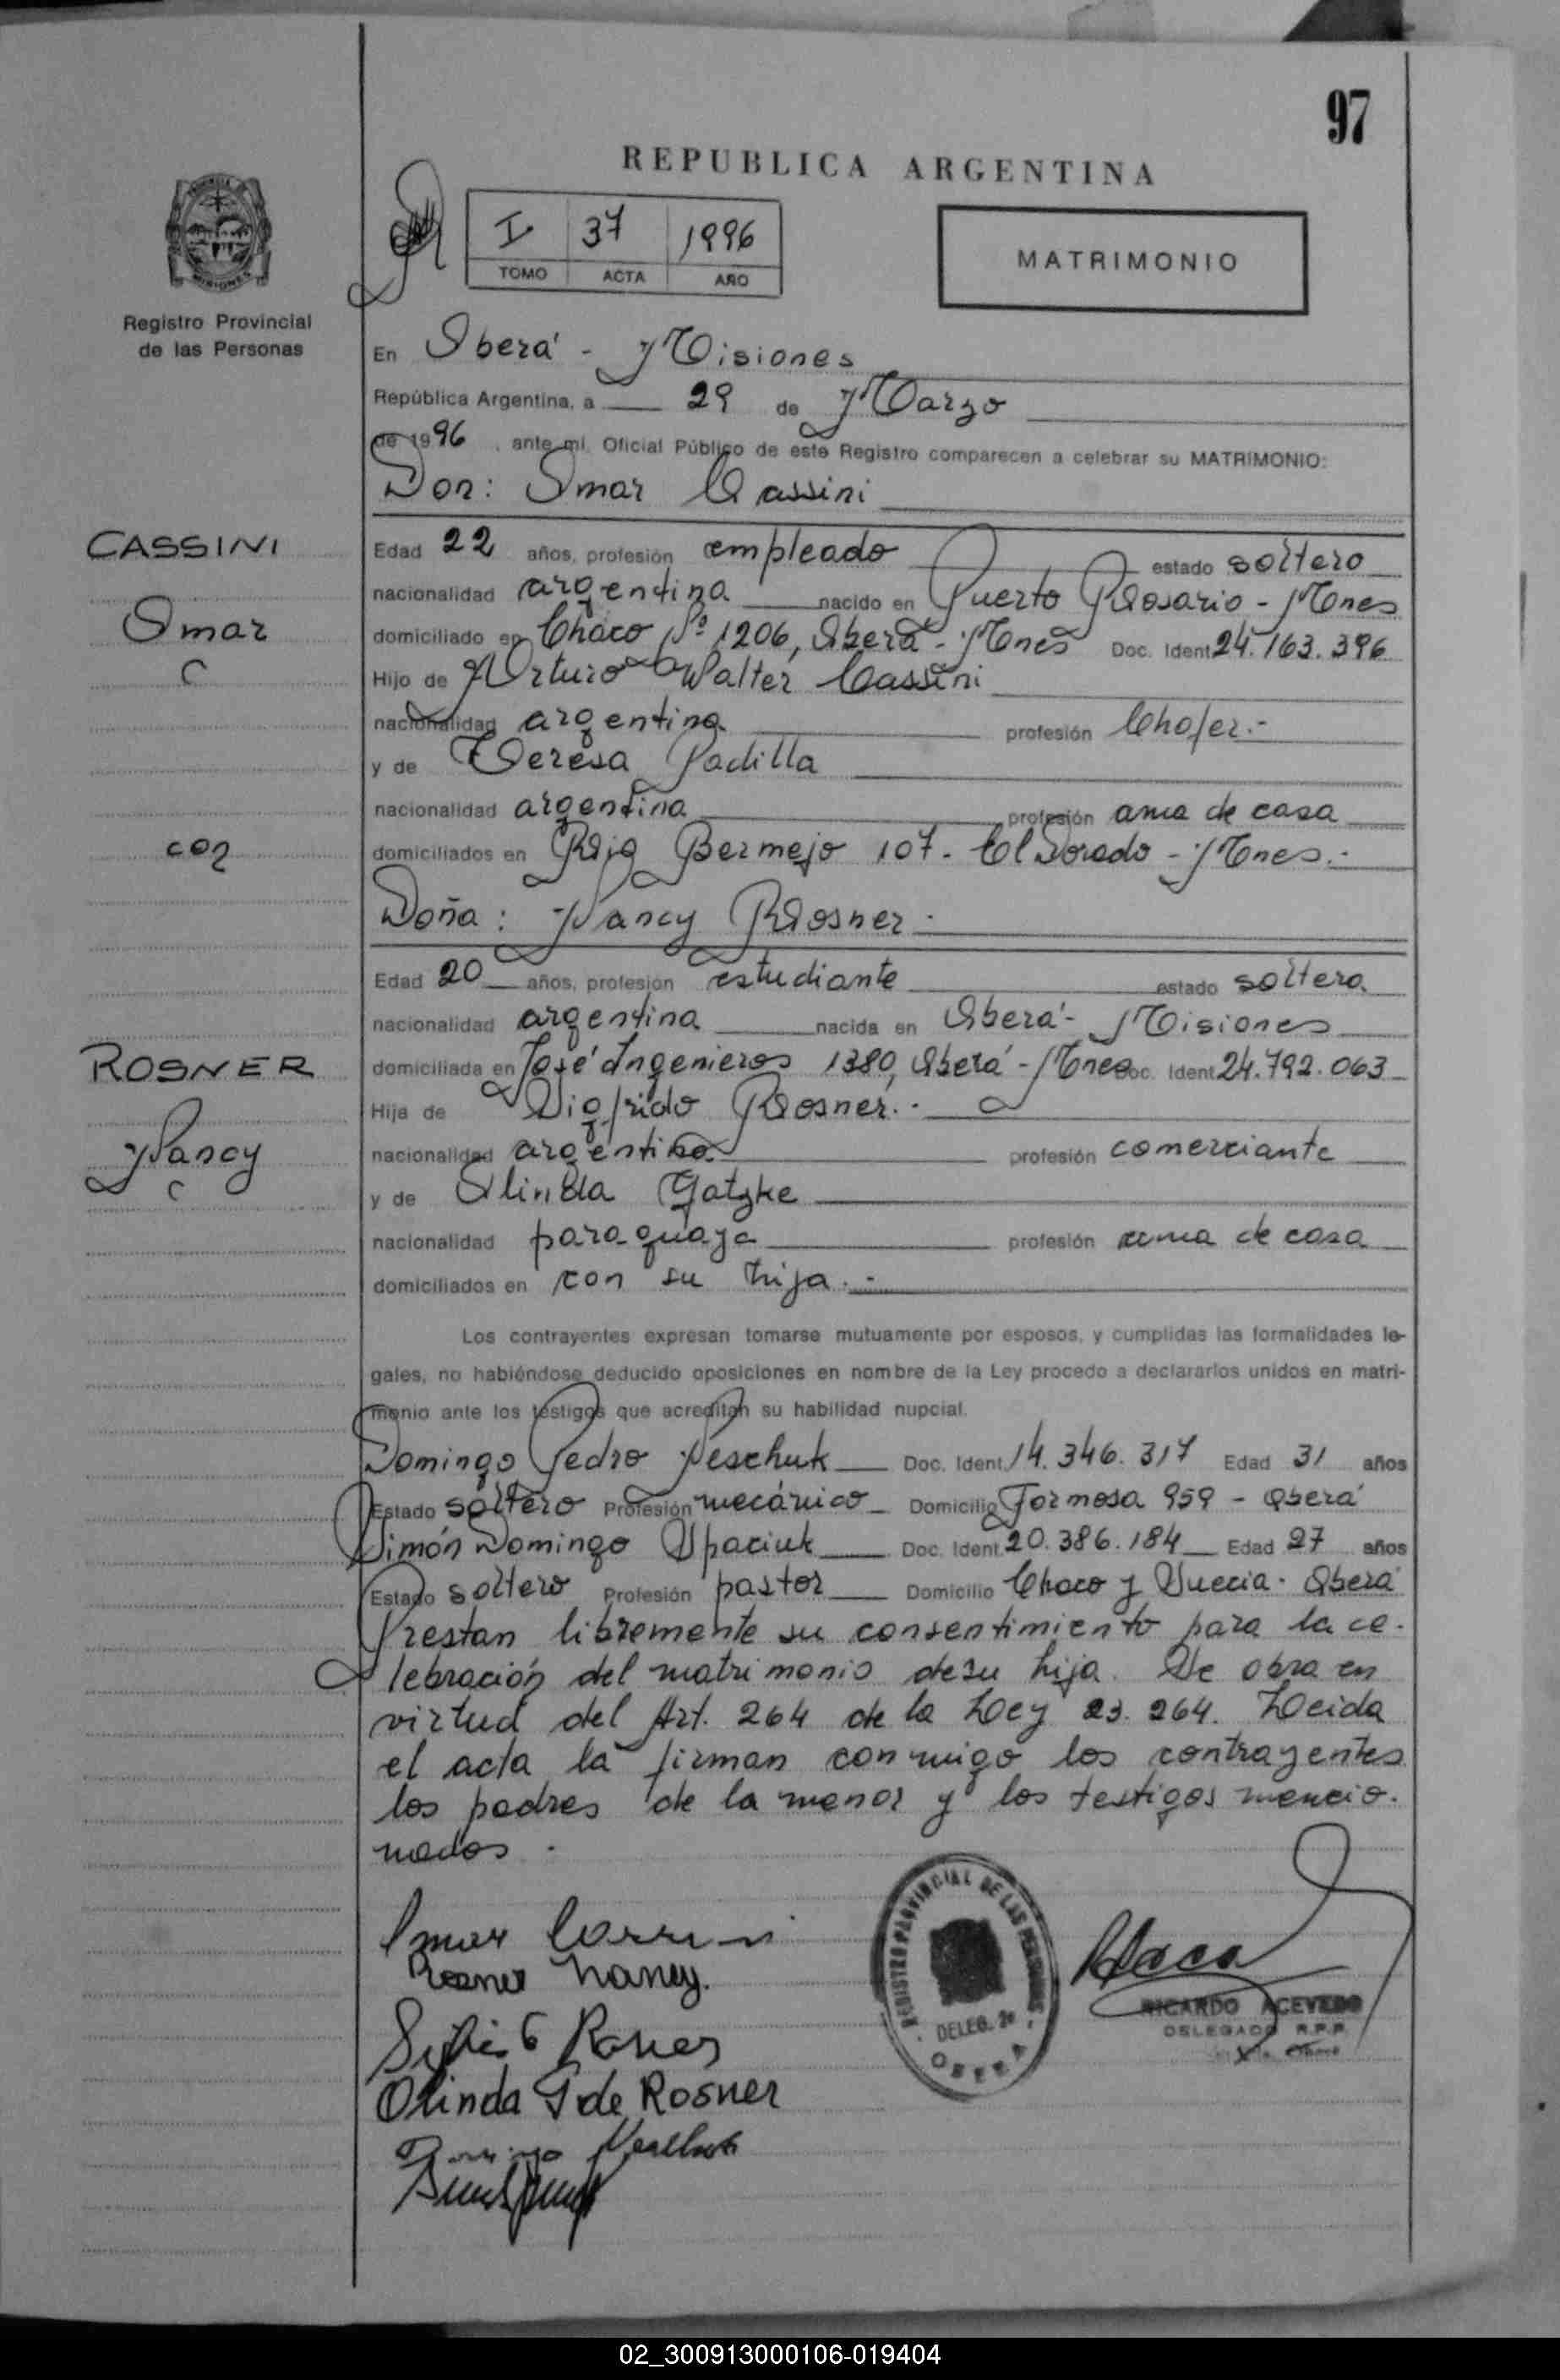 97
REPUBLICA ARGENTINA
I 37 1996
TOMO ACTA AÑO
MATRIMONIO
Registro Provincial
de las Personas
En Oberá - Misiones
República Argentina, a 29 de Marzo
de 1996, ante mí, Oficial Público de este Registro comparecen a celebrar su MATRIMONIO:
Don: Omar Cassini
CASSINI
Omar
C
con
ROSNER
Nancy
C
Edad 22 años, profesión empleado estado soltero
nacionalidad argentina nacido en Puerto Rosario - Mnes
domiciliado en Chaco Nº 1206, Oberá - Mnes Doc. Ident 24.163.396
Hijo de Arturo Walter Cassini
nacionalidad argentina profesión Chofer.-
y de Teresa Padilla
nacionalidad argentina profesión ama de casa
domiciliados en Bermejo 107 - ElDorado - Mnes.-
Doña: Nancy Rosner.
Edad 20 años, profesión estudiante estado soltera
nacionalidad argentina nacida en Oberá - Misiones
domiciliada en José Ingenieros 1380, Oberá - Mnes Doc. Ident 24.792.063
Hija de Sigfrido Rosner.-
nacionalidad argentina profesión comerciante
y de Olinda Gatzke
nacionalidad paraguaya profesión ama de casa
domiciliados en con su hija.-
Los contrayentes expresan tomarse mutuamente por esposos, y cumplidas las formalidades le-
gales, no habiéndose deducido oposiciones en nombre de la Ley procedo a declararlos unidos en matri-
monio ante los testigos que acreditan su habilidad nupcial.
Domingo Pedro Neschuk Doc. Ident. 14.346.317 Edad 31 años
Estado soltero Profesión mecánico Domicilio Formosa 959 - Oberá
Simón Domingo Spaciuk Doc. Ident. 20.386.184 Edad 27 años
Estado soltero Profesión pastor Domicilio Chaco y Suecia - Oberá
Prestan libremente su consentimiento para la ce-
lebración del matrimonio de su hija. Se obra en
virtud del Art. 264 de la Ley 23.264. Leida
el acta la firman conmigo los contrayentes
los padres de la menor y los testigos mencio-
nados.
Omar Cassini
Rosner Nancy.
Rosner
Olinda G de Rosner
REGISTRO PROVINCIAL DE LAS PERSONAS
DELEG. 2ª
OBERA
RICARDO ACEVEDO
DELEGADO R.P.P.
02_300913000106-019404